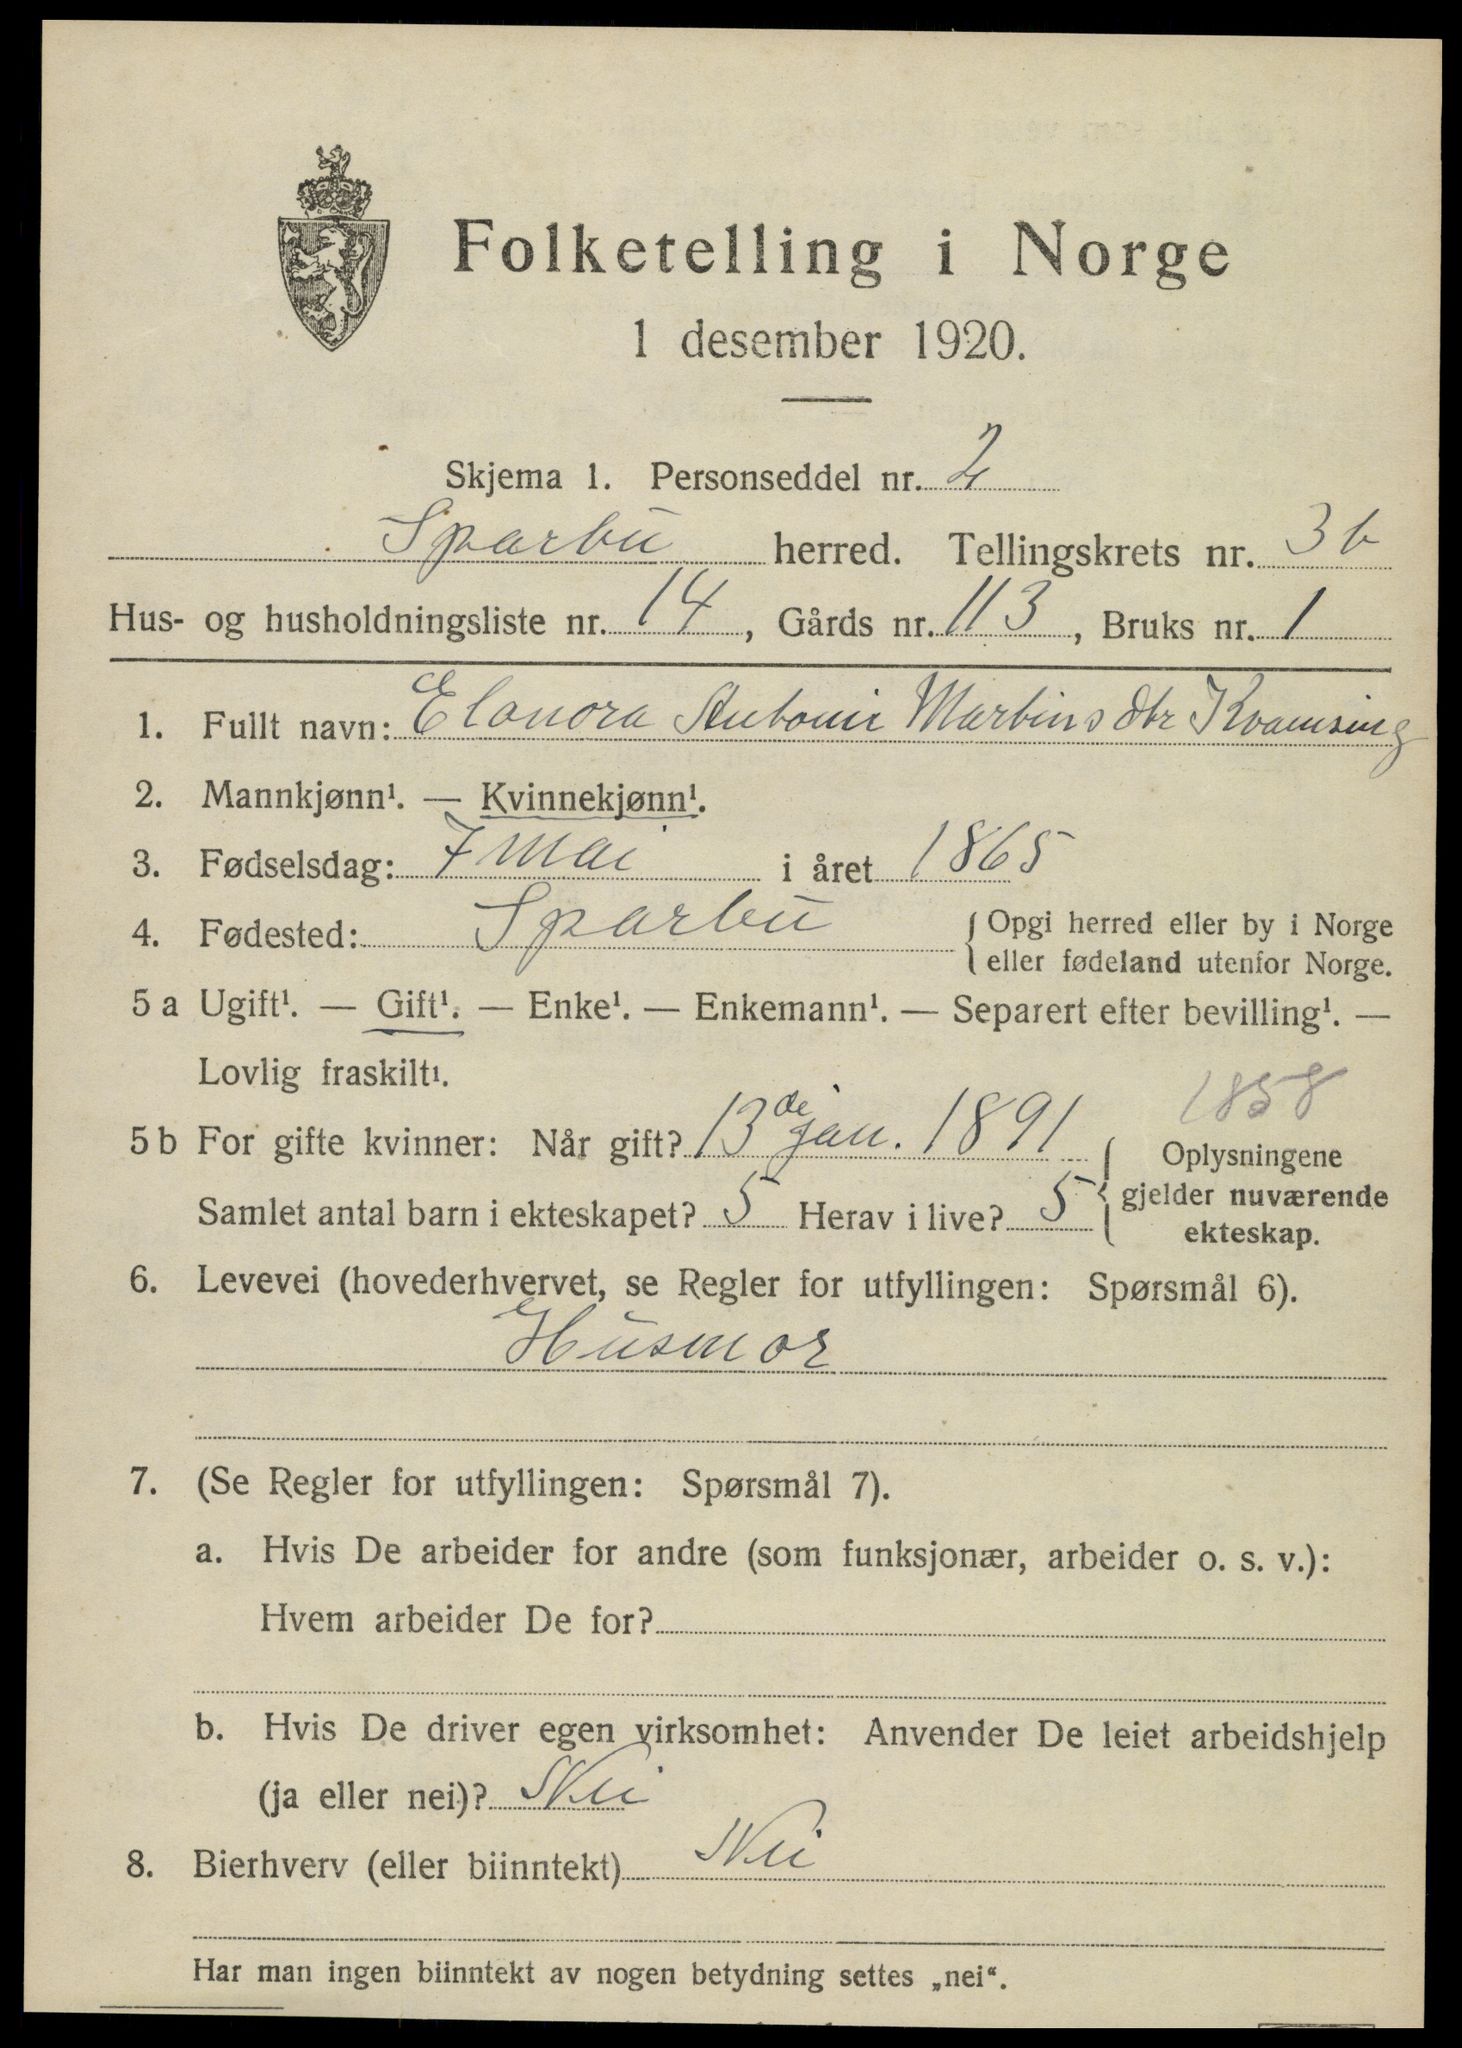 Folketelling i Norge
1 desember 1920.
Skjema 1. Personseddel nr. 2
Sparbu herred. Tellingskrets nr. 3b
Hus- og husholdningsliste nr. 14, Gårds nr. 113, Bruks nr. 1
1. Fullt navn: Elonora Antonie Martinsdtr Kvamsing
2. Mannkjønn¹. — Kvinnekjønn¹.
3. Fødselsdag: 7 mai i året 1865
4. Fødested: Sparbu { Opgi herred eller by i Norge
eller fødeland utenfor Norge.
5 a Ugift¹. — Gift¹. — Enke¹. — Enkemann¹. — Separert efter bevilling¹. —
Lovlig fraskilt¹.
1858
5 b For gifte kvinner: Når gift? 13de jan. 1891 { Oplysningene
gjelder nuværende
Samlet antal barn i ekteskapet? 5 Herav i live? 5
ekteskap.
6. Levevei (hovederhvervet, se Regler for utfyllingen: Spørsmål 6).
Husmor
7. (Se Regler for utfyllingen: Spørsmål 7).
a. Hvis De arbeider for andre (som funksjonær, arbeider o. s. v.):
Hvem arbeider De for?
b. Hvis De driver egen virksomhet: Anvender De leiet arbeidshjelp
(ja eller nei)? Nei
8. Bierhverv (eller biinntekt) Nei
Har man ingen biinntekt av nogen betydning settes „nei“.